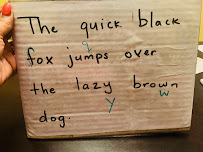 The quick black
fox jumps over
the lazy brown
dog.